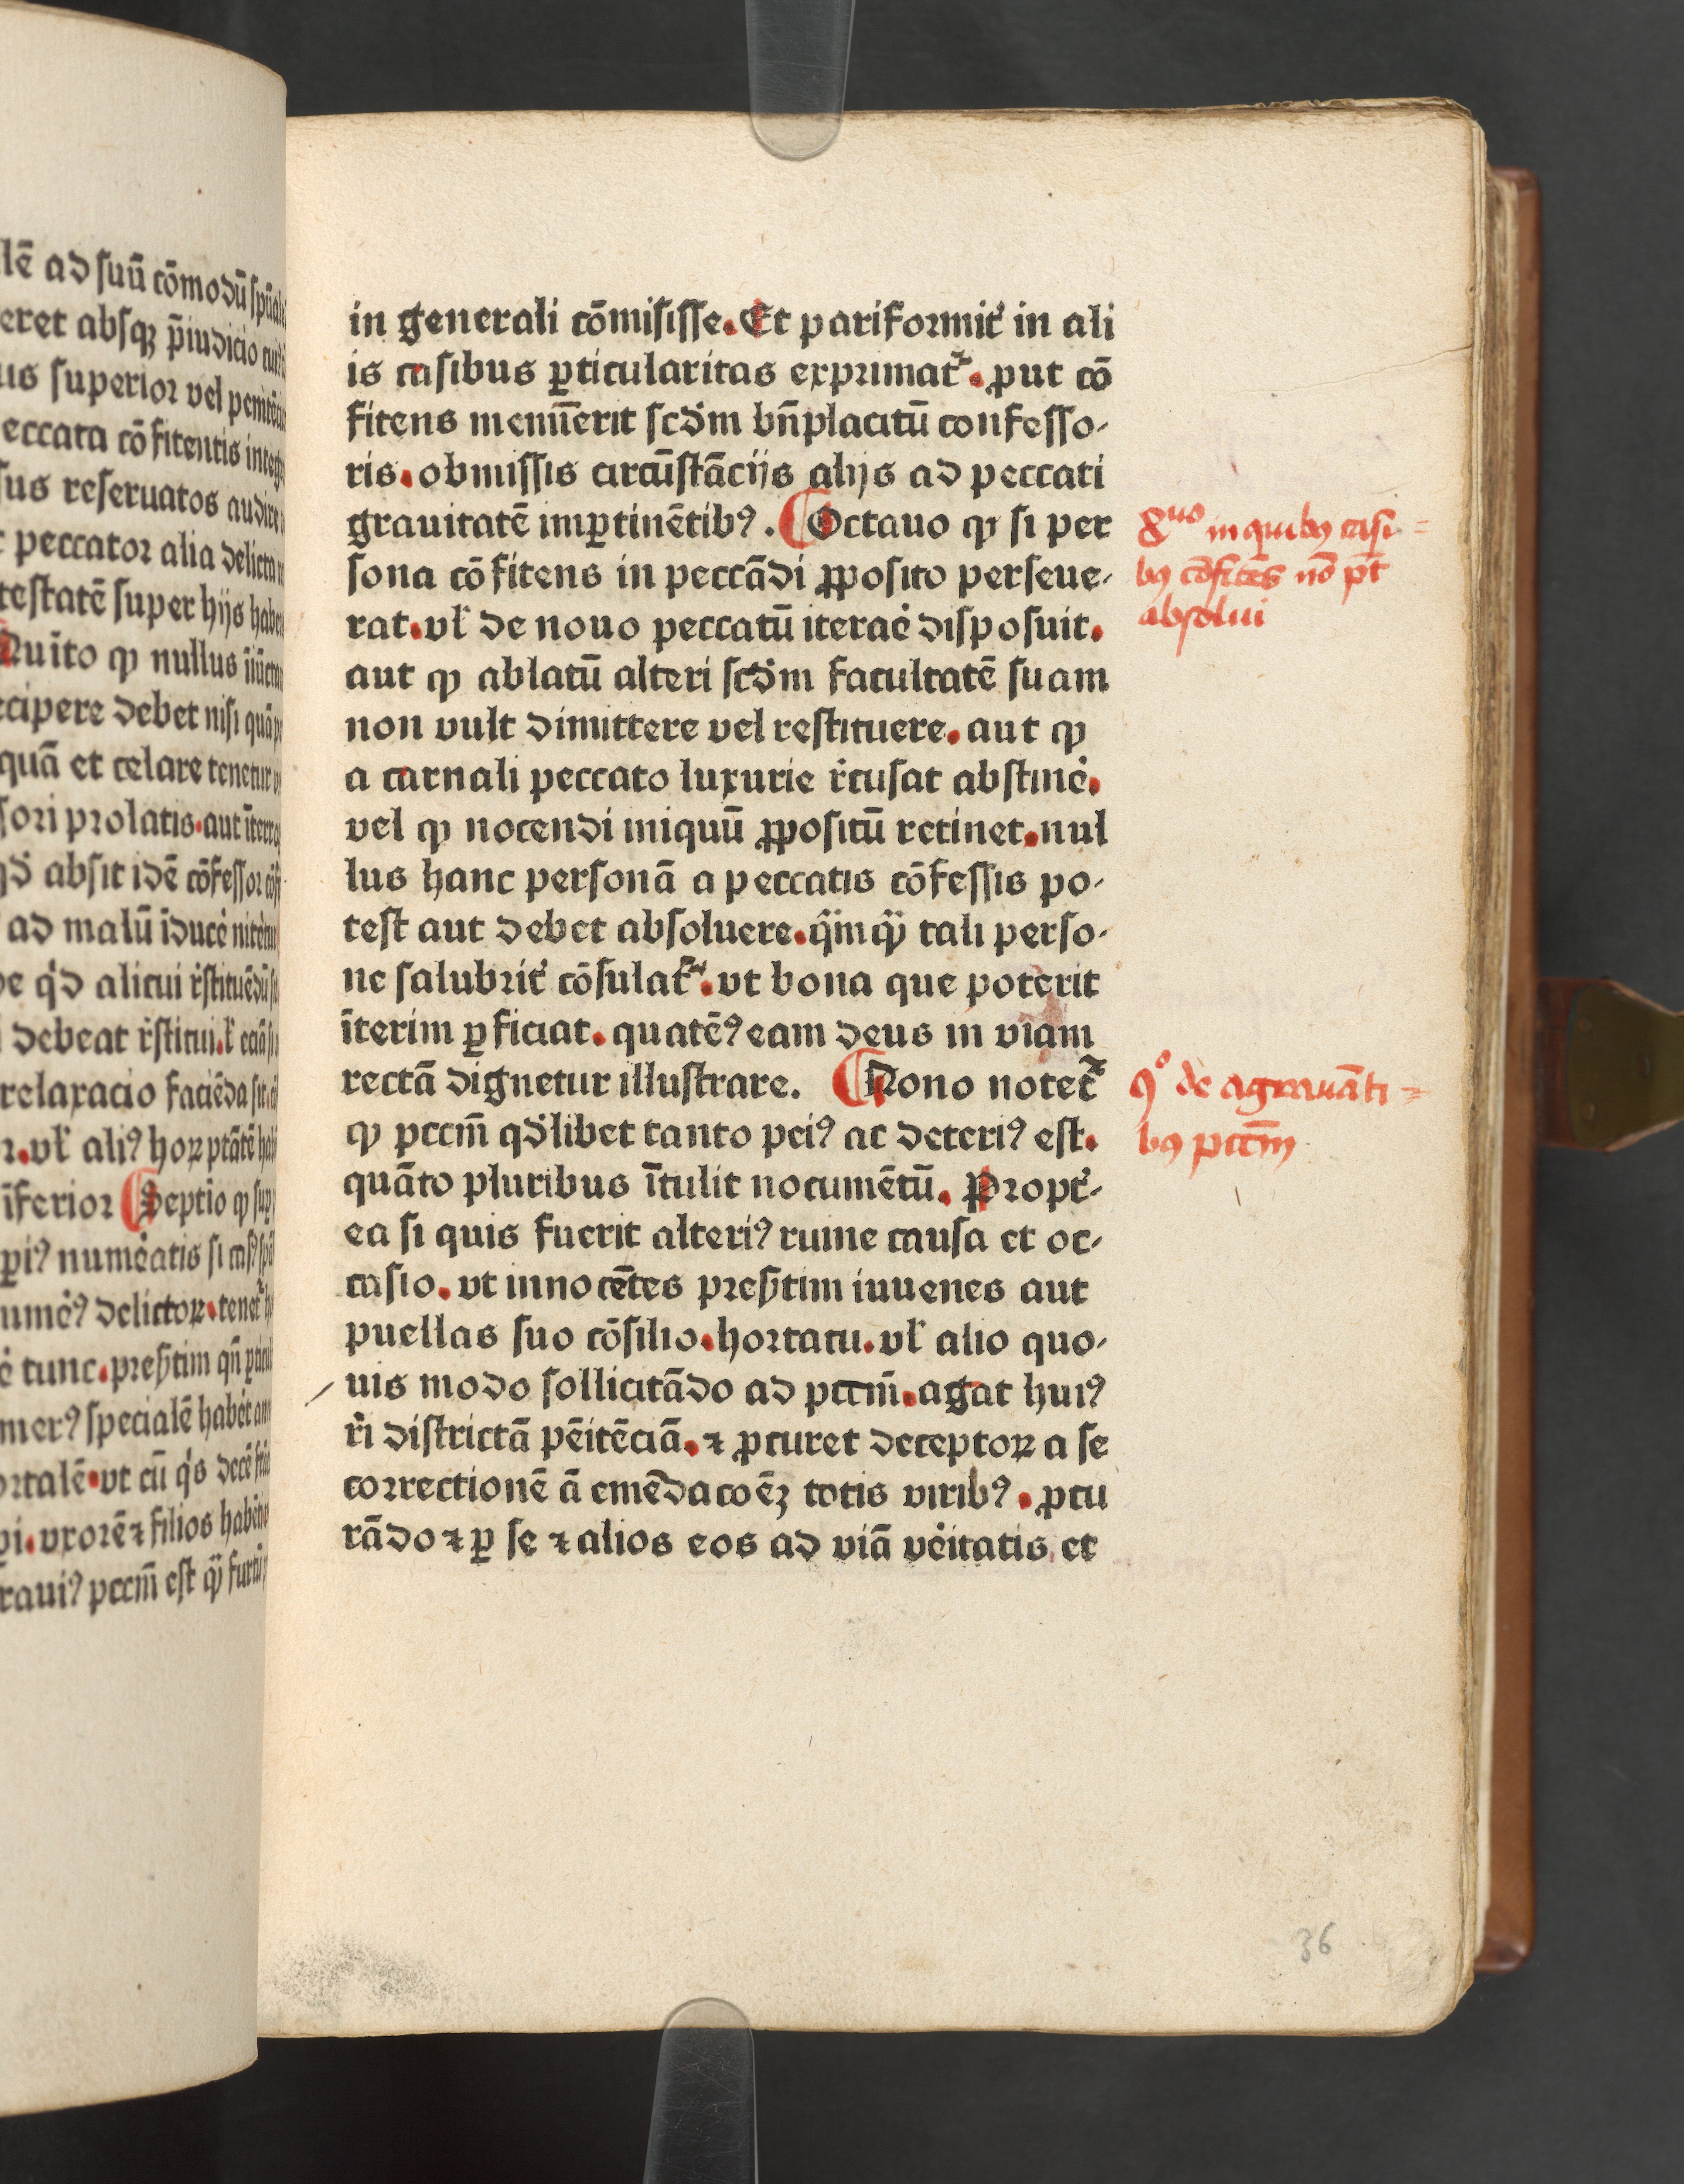 lē ad suū cōmodū spūal
eret absqꝫ p̄iudicio
us superior vel
eccata cōfitentis
sus reseruatos audire
peccator alia delicta
testatē super hijs habe
Quīto ꝙ nullus
cipere debet nisi quā
quā et celare tenetur
sori prolatis. aut
absit idē cōfessor
ad malū īducē
alicui r̄stituēdū
debeat r̄stitui.
relaxacio faciēda sit
vl̄ aliꝰ hoꝝ
īferior Septīo ꝙ
numēatis si
umēꝰ delictoꝝ. tenet᷑
tunc. pres̄tim qn̄
specialē habēt
ortalē. vt cū q̇s decē
vxorē ⁊ filios habēt
rauiꝰ pccm̄ est
in generali cōmisisse. Et pariformit᷑ in ali
is casibus ꝑticularitas exprimat᷑. ꝓut cō
fitens memīerit scđm bn̄placitū confesso⸗
ris. obmissis circūstācijs alijs ad peccati
grauitatē imꝑtinētibꝰ. Octauo ꝙ si per
sona cōfitens in peccādi ꝓposito perseue⸗
rat. vl̄ de nouo peccatū iteraē disposuit.
aut ꝙ ablatū alteri scđm facultatē suam
non vult dimittere vel restituere. aut ꝙ
a carnali peccato luxurie r̄cusat abstinē.
vel ꝙ nocendi iniquū ꝓpositū retinet. nul
lus hanc personā a peccatis cōfessis po⸗
test aut debet absoluere. q̄inqꝫ tali perso⸗
ne salubrit᷑ cōsulat᷑. vt bona que poterit
īterim ꝑficiat. quatēꝰ eam deus in viam
rectā dignetur illustrare. Nono notet᷑
ꝙ pccm̄ qđlibet tanto peiꝰ ac deteriꝰ est.
quāto pluribus ītulit nocumētū. Propt᷑⸗
ea si quis fuerit alteriꝰ ruine causa et oc⸗
casio. vt innocētes pres̄tim iuuenes aut
puellas suo cōsilio. hortatu. vl̄ alio quo⸗
uis modo sollicitādo ad pccm̄. agat huiꝰ
r̄i districtā pēitēciā. ⁊ ꝓcuret deceptoꝝ a se
correctionē ā emēdacoēꝫ totis viribꝰ. ꝓcu
rādo ⁊ ꝑ se ⁊ alios eos ad viā vēitatis et
8uo in quibꝯ casi=
bꝯ cōfitēs nō pt̄
absolui
9o de agrauāti=
bꝯ pccm̄
36